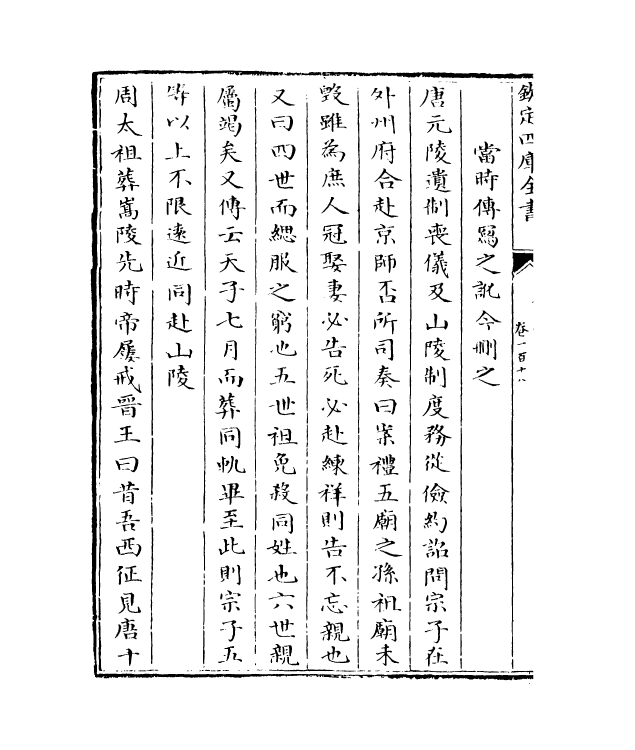 欽定四庫全書
卷一百十八
當時傳寫之訛今刪之
唐元陵遺制喪儀及山陵制度務從儉約詔問宗子在
外州府合赴京師否所司奏曰案禮五廟之孫祖廟未
毀雖為庶人冠娶妻必告死必赴練祥則告不忘親也
又曰四世而緦服之窮也五世祖免殺同姓也六世親
屬竭矣又傳云天子七月而葬同軌畢至此則宗子五
等以上不限逺近同赴山陵
周太祖葬嵩陵先時帝屢戒晉王曰昔吾西征見唐十